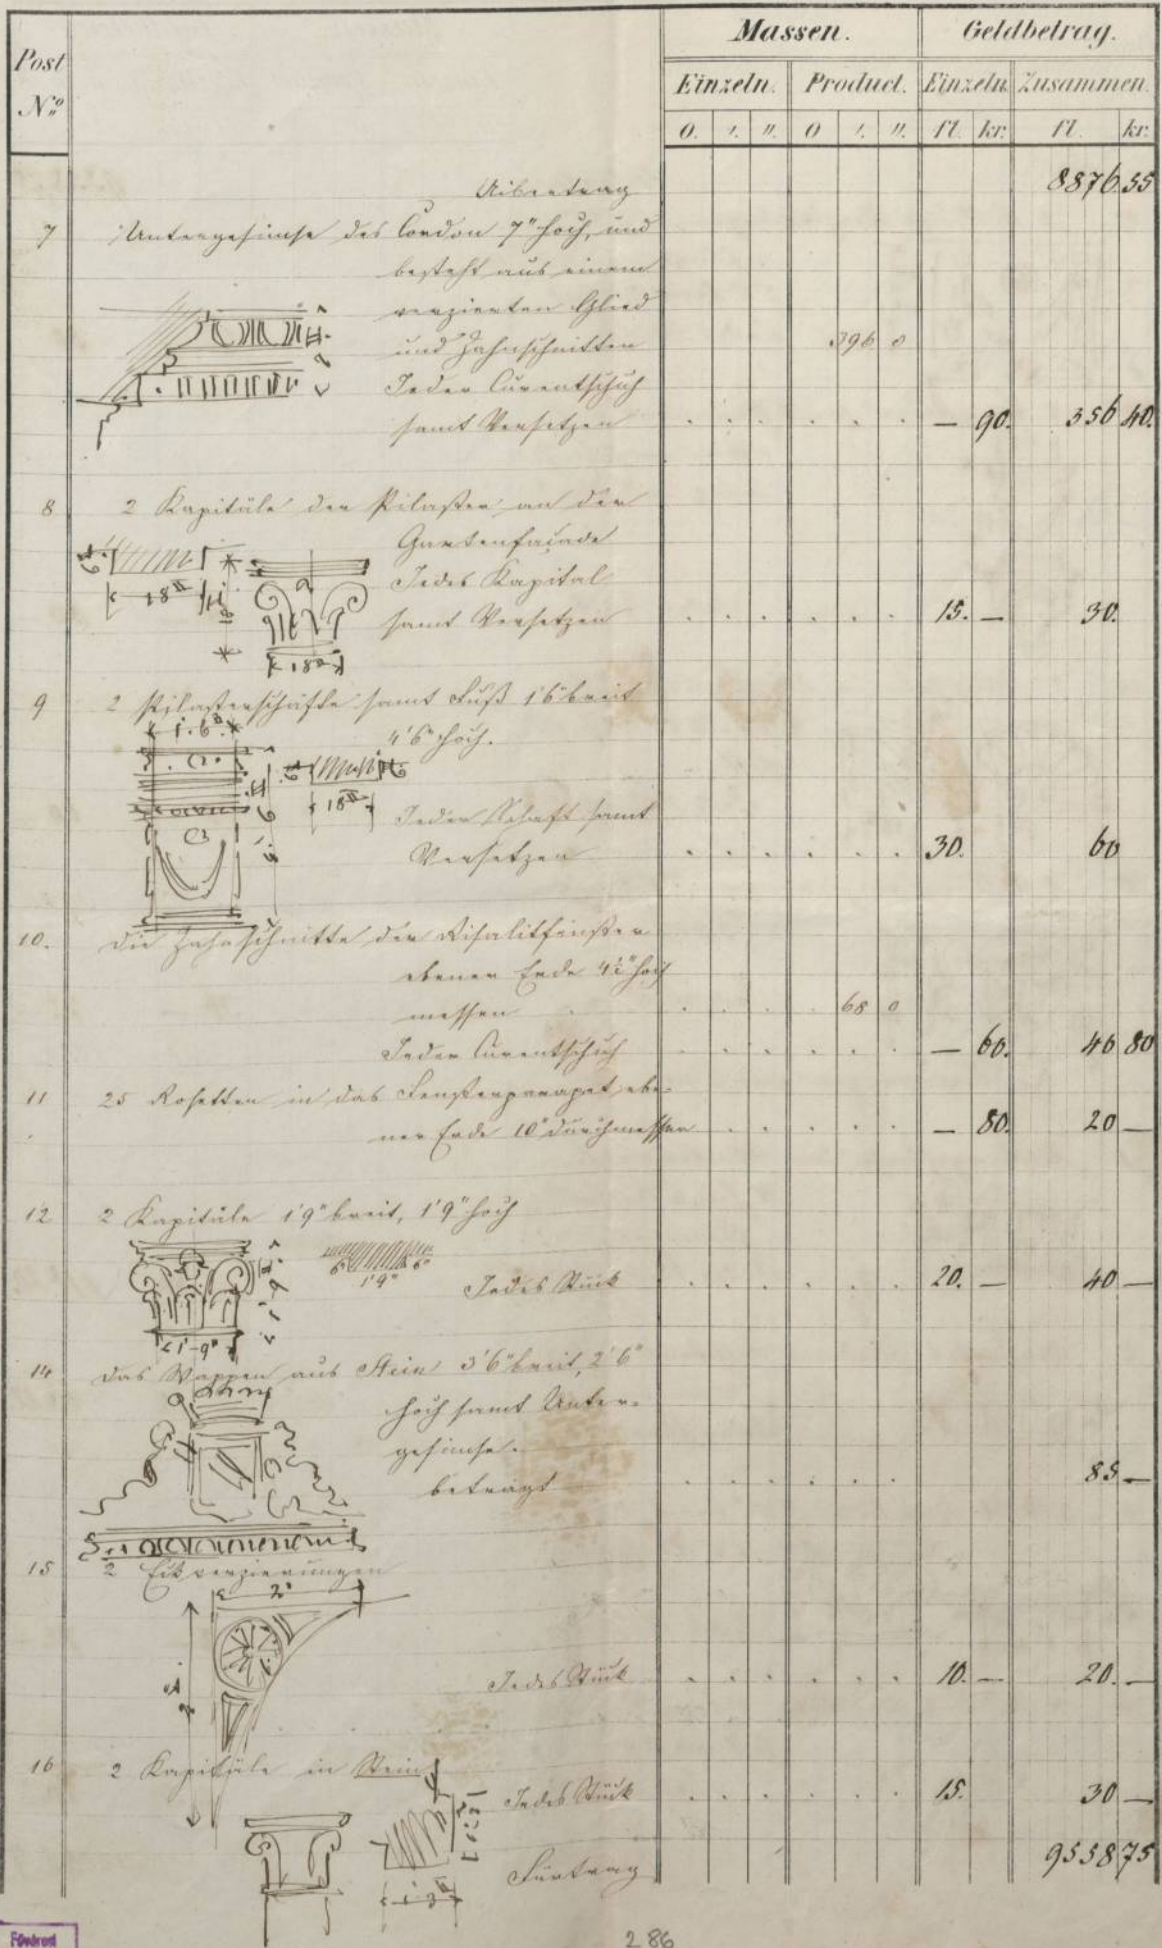 Post No. Massen. Geldbetrag.
Einzeln. Product. Einzeln. Zusammen.
0. ı. ıı. 0 ı. ıı. fl. kr. fl. kr.
Uibertrag 8876 55
7 Untergesimse des Cordon 7" hoch, und
besteht aus einem
verzierten Glied
und Zahnschnitten 396 0
Jeder Currentschuh
samt Versetzen — 90. 356 40.
8 2 Kapitäle der Pilaster an der
Gartenfaçade
Jedes Kapitäl
samt Versetzen 15. — 30.
18"
18"
9 2 Pilasterschäfte samt Fuß 1'6" breit
1'.6"
4'6" hoch.
18"
Jeder Schaft samt
Versetzen 30. 60
10. Die Zahnschnitte der Risalitfenster
ebener Erde 4½" hoch
messen 68 0
Jeder Currentschuh — 60. 40 80
11 25 Rosetten in das Fensterparapet ebe-
ner Erde 10" durchmesser — 80. 20 —
12 2 Kapitäle 1'9" breit, 1'9" hoch
6" 6"
1'9"
Jedes Stück 20. — 40 —
1'-9"
14 Das Wappen aus Stein 3'6" breit, 2'6"
hoch samt Unter-
gesimse.
beträgt 85 —
15 2 Eckverzierungen
2'
Jedes Stück 10. — 20. —
16 2 Kapitäle in Stein
Jedes Stück 15. 30 —
Fürtrag 9558 75
286